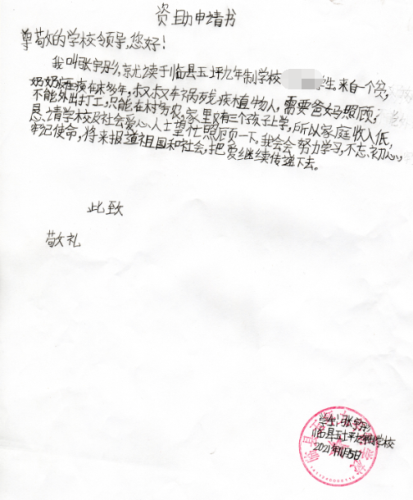 资助申请书
尊敬的学校领导,您好!
我叫张宇彤,就读于临县五坪九年制学校 生,来自一个贫,
奶奶疾病在床多年,叔叔车祸残疾植物人,需要爸妈照顾,
不能外出打工,只能在村务农,家里有三个孩子上学,所以家庭收入低,
恳请学校及社会爱心人士望社照顾一下,我会会努力学习,不忘初心,
牢记使命,将来报道祖国和社会,把爱继续传递下去。
此致
敬礼
学生:张宇
临县五坪九年制学校
2021年 月5日